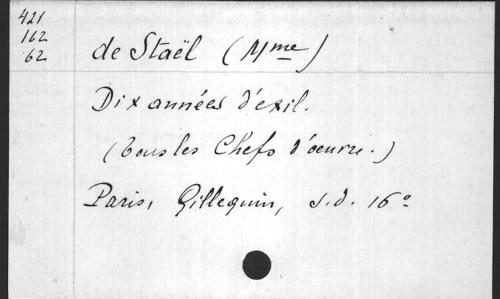 421
162
62
de Staël (Mme)
Dix années d'exil.
(Tous les Chefs d'oeuvre.)
Paris, Gillequin, s.d. 16°